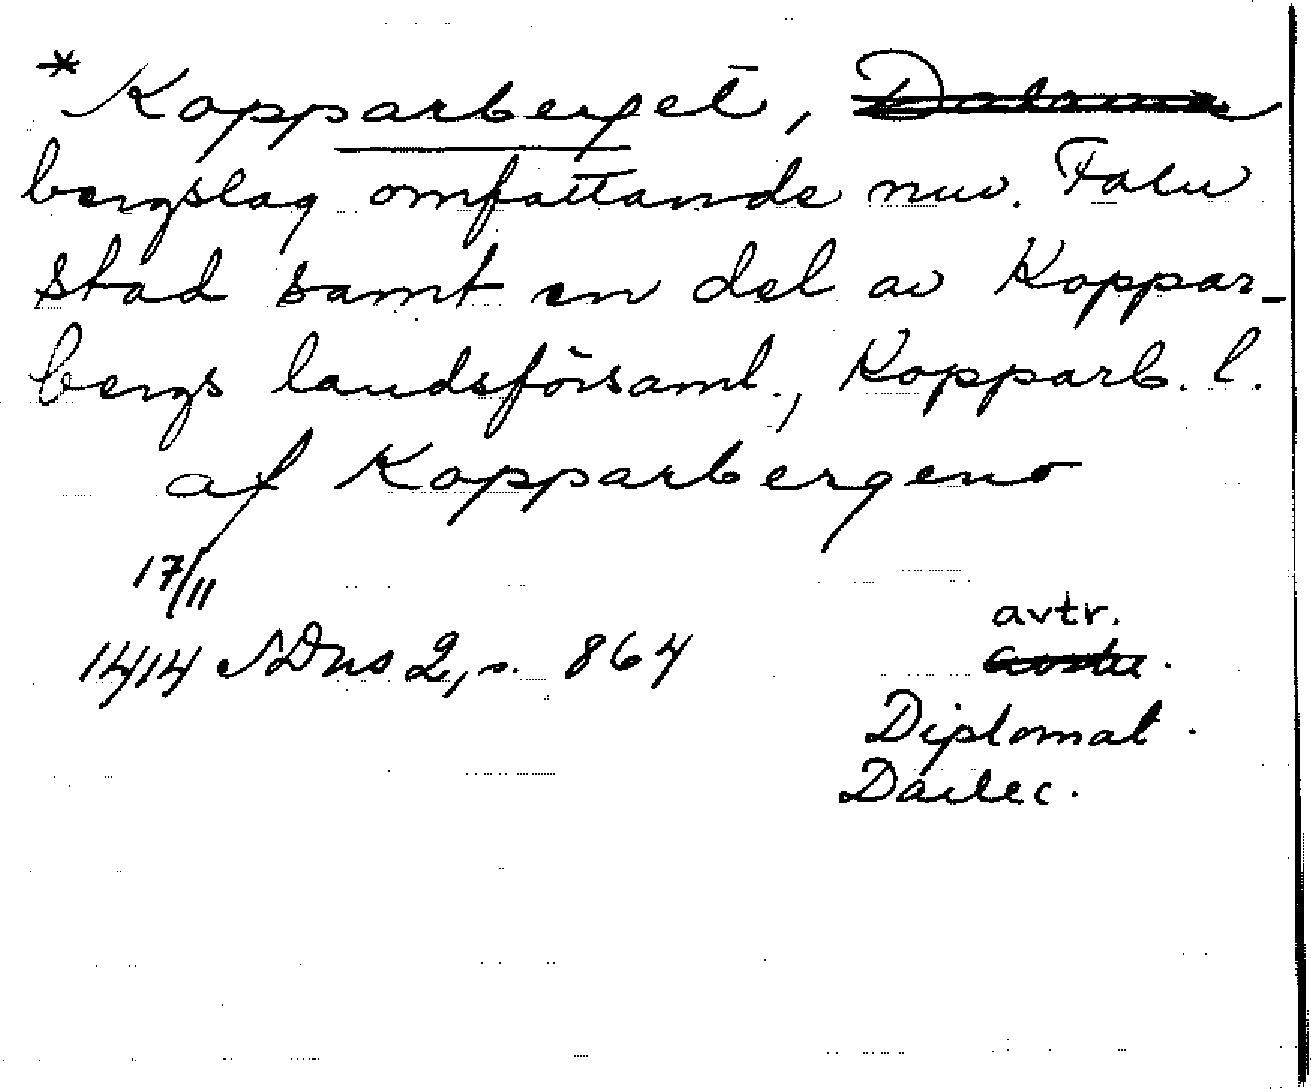 *Kopparberget,
bergslag omfattande nuv. Falu
stad samt en del av Koppar-
bergs landsförsaml., Kopparb. l.
af Kopparbergeno
17/11
1414 SDns 2, s. 864
avtr.
Diplomat.
Dalec.